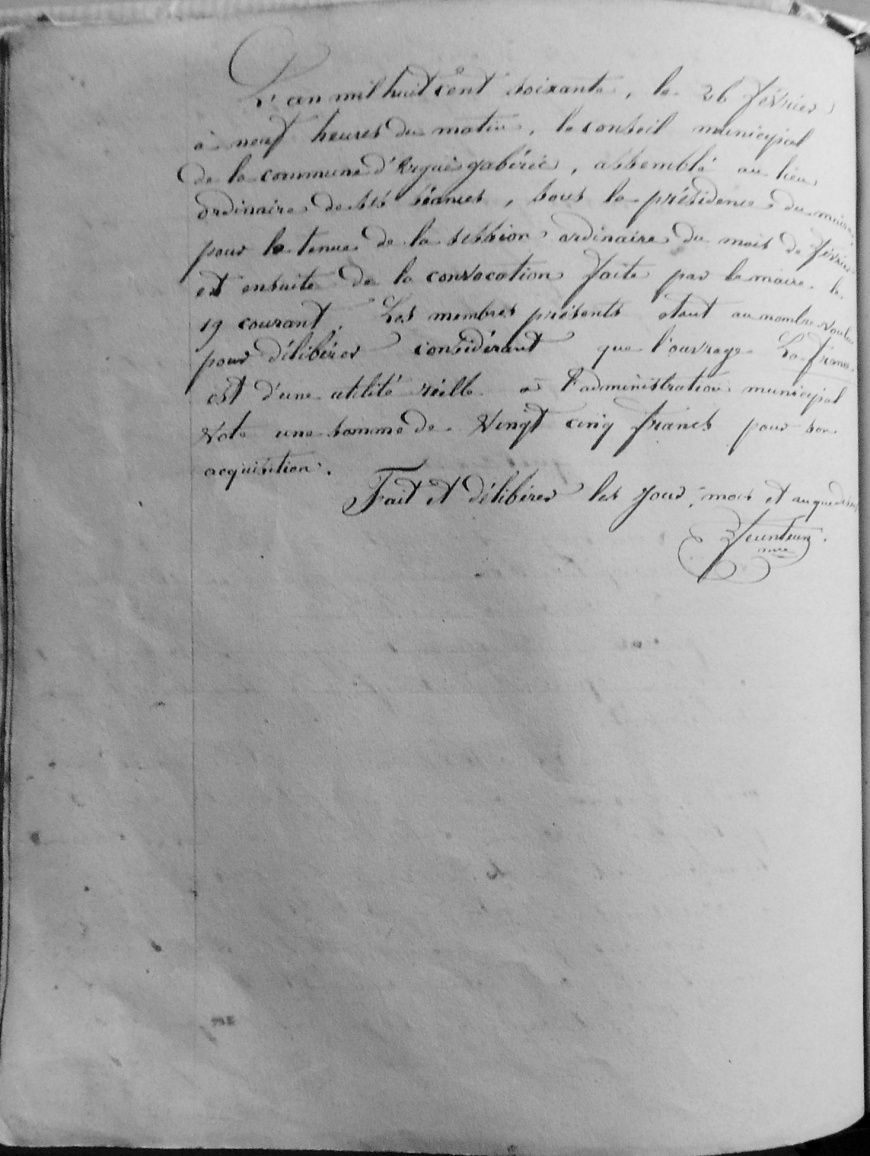 L'an mil huit cent soixante, le 26 février
à neuf heures du matin, le conseil municipal
de la commune d'Ergué gabéric, assemblé au lieu
ordinaire de ses séances, sous la présidence du maire
pour la tenue de la session ordinaire du mois de février
et ensuite de la convocation faite par le maire le
19 courant. Les membres présents étant au nombre voulu
pour délibérer considérant que l'ouvrage La france
est d'une utilité réelle à l'administration municipal
vote une somme de vingt cinq francs pour son
acquisition.
Fait et délibérer les jour, mois et an que dessus
mre